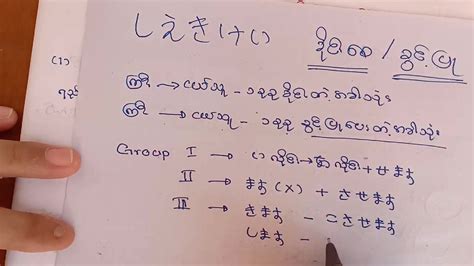 しえきけい ခိုင်းစေ / ခွင့်ပြု
ကြီး → ငယ်သူ - ၁ခုခု ခိုင်းတဲ့အခါသုံး
ကြီး → ငယ်သူ - ၁ခုခု ခွင့်ပြုပေးတဲ့အခါသုံး
Group I → + せます
II → ます (x) + させます
III → きます - こさせます
します -
(၁)